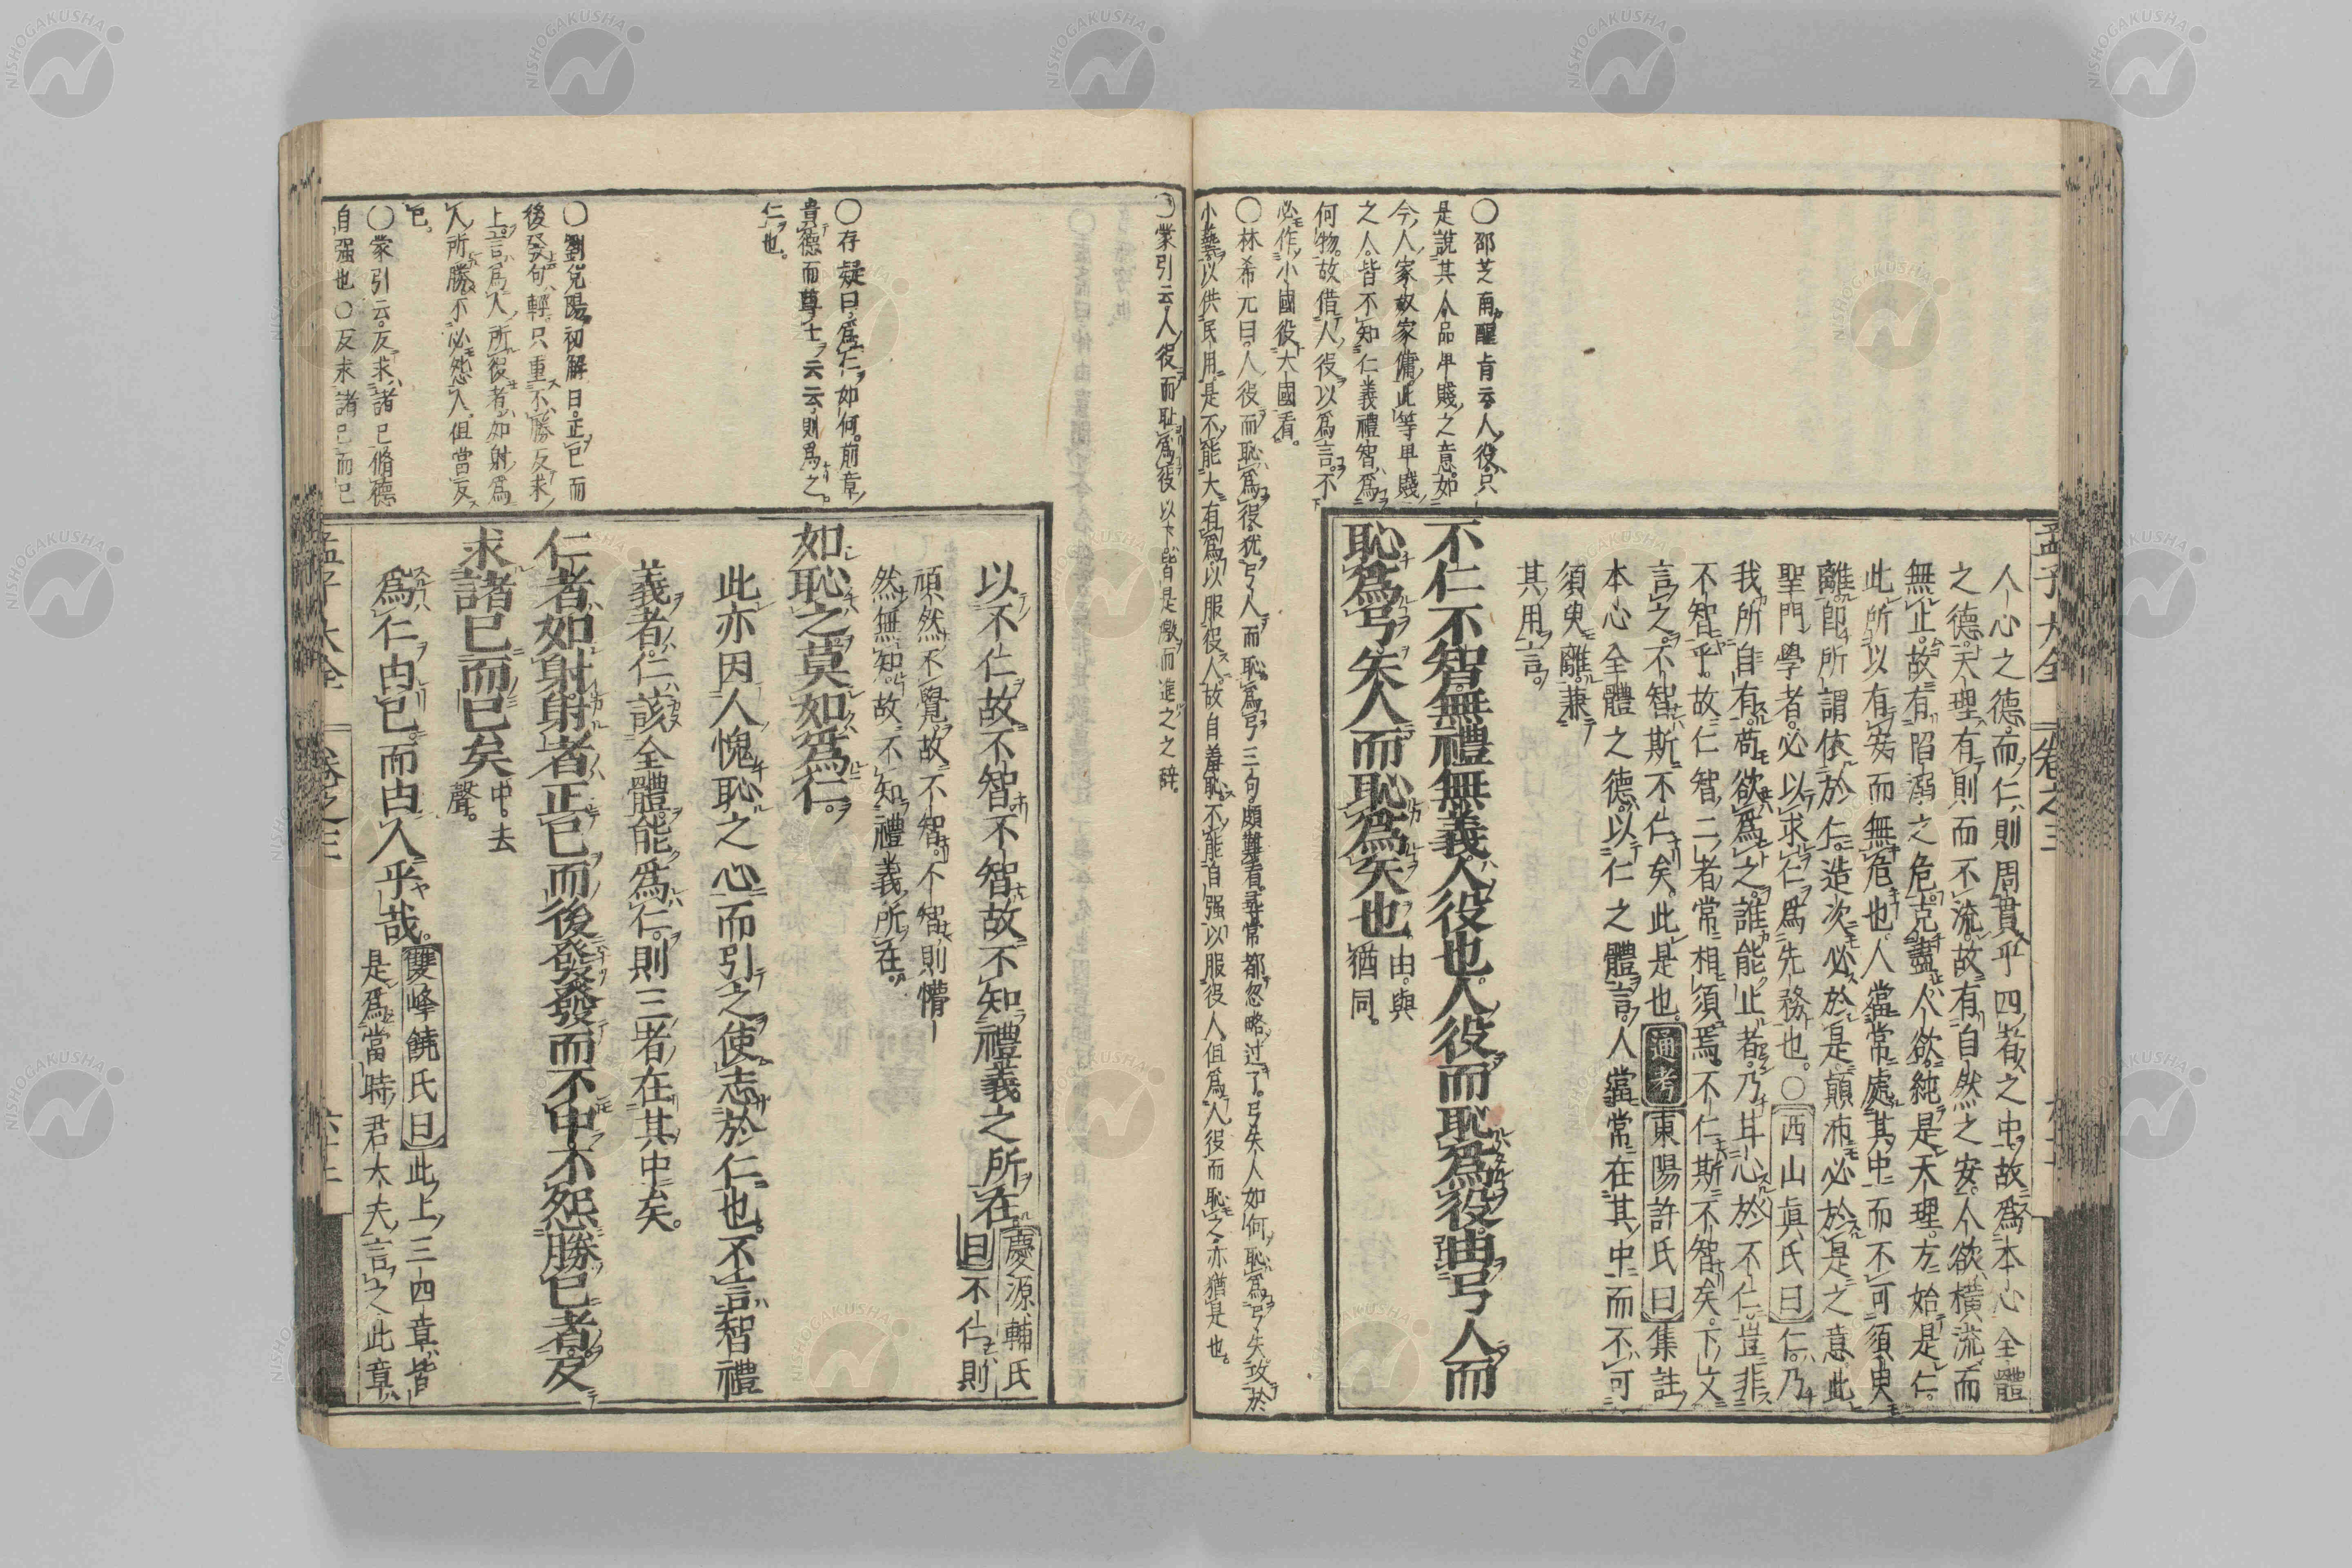 孟子大全 卷之三
人心之德而仁則周貫乎四者之中故爲本心全體
之德天理有則而不流故有自然之安人欲橫流而
無止故有陷溺之危克盡人欲純是天理方始是仁
此所以有安而無危也人當常處其中而不可須臾
離卽所謂依於仁造次必於是顚沛必於是之意此
聖門學者必以求仁爲先務也○西山眞氏曰仁乃
我所自有苟欲爲之誰能止者乃甘心於不仁豈非
不智乎故仁智二者常相須焉不仁斯不智矣下文
言之不智斯不仁矣此是也通考東陽許氏曰集註
本心全體之德以仁之體言人當常在其中而不可
須臾離兼
其用言
不仁不智無禮無義人役也人役而恥爲役由弓人而
恥爲弓矢人而恥爲矢也由與
猶同
○邵芝南醒肯云人役只
是說其人品卑賤之意如
今人家奴家傭此等卑賤
之人皆不知仁義禮智爲
何物故借人役以爲言不
必作小國役大國看
○林希元曰人役而恥爲役猶弓人而恥爲弓三句頗難看尋常都忽略过了弓矢人如何恥爲弓矢攻於
小藝以供民用是不能大有爲以服役人故自羞恥不能自强以服役人但爲人役而恥之亦猶是也
○蒙引云人役而耻爲役以下皆是激而進之之辭
以不仁故不智不智故不知禮義之所在慶源輔氏
曰不仁則
頑然不覺故不智不智則懵
然無知故不知禮義所在
如恥之莫如爲仁
此亦因人愧恥之心而引之使志於仁也不言智禮
義者仁該全體能爲仁則三者在其中矣
仁者如射射者正己而後發發而不中不怨勝己者反
求諸己而已矣中去
聲
爲仁由己而由人乎哉雙峰饒氏曰此上三四章皆
是爲當時君大夫言之此章
○存疑曰爲仁如何前章
貴德而尊士云云則爲之
仁也
○劉兌陽初解曰正己而
後發句輕只重不勝反求
上言爲人所役者如射爲
人所勝不必怨人但當反
己
○蒙引云反求諸己脩德
自强也○反求諸己而已
孟子大全 卷之三